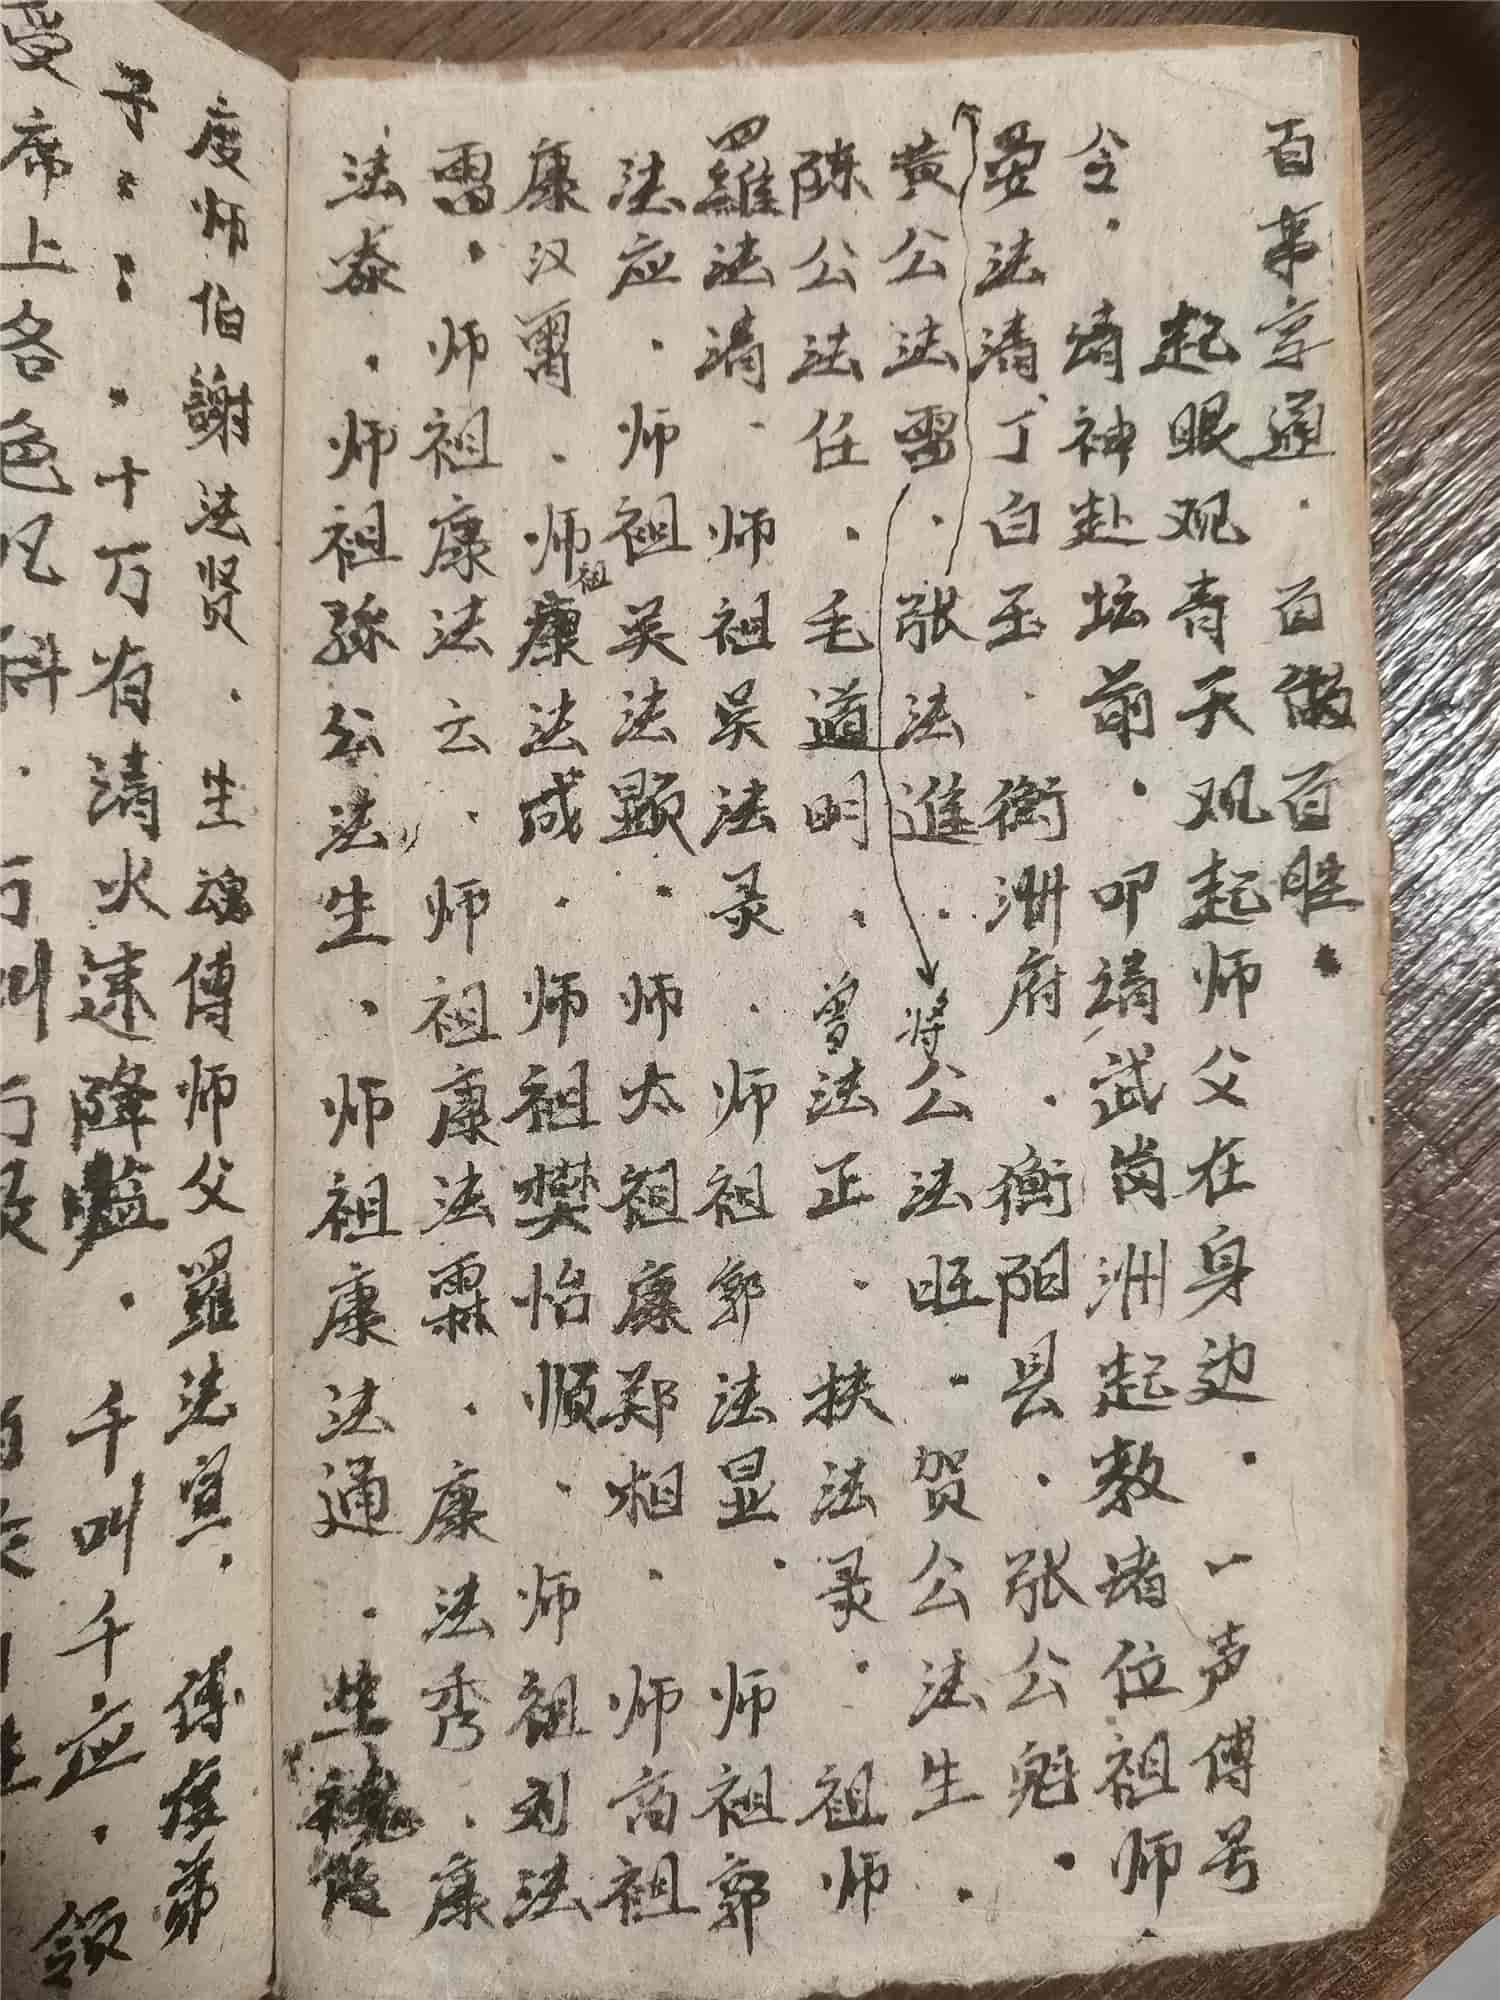 百事享通．百做百胜．
起眼观青天观起师父在身边．一声傅号
令．请神赴坛前．叩请武岗洲起教诸位祖师．
晏法清丁白玉．衡洲府．衡阳县．张公魁．
黄公法雷．张法進．将公法旺．贺公法生．
陈公法任．毛道明．曾法正．扶法录．祖师
四羅法清．师祖吴法录．师祖郭法显．师祖郭
法应．师祖吴法顕．师太祖康郑相．师高祖
康汉雷．师祖康法成．师祖樊怡順．师祖刘法
雷．师祖康法云．师祖康法霖．康法秀．康
法泰．师祖孫公法生．师祖康法通．生魂
度师伯謝法贤．生魂傅师父羅法宣．傅度弟
子：：．十万有清火速降臨．千叫千应．
受席上各色凡